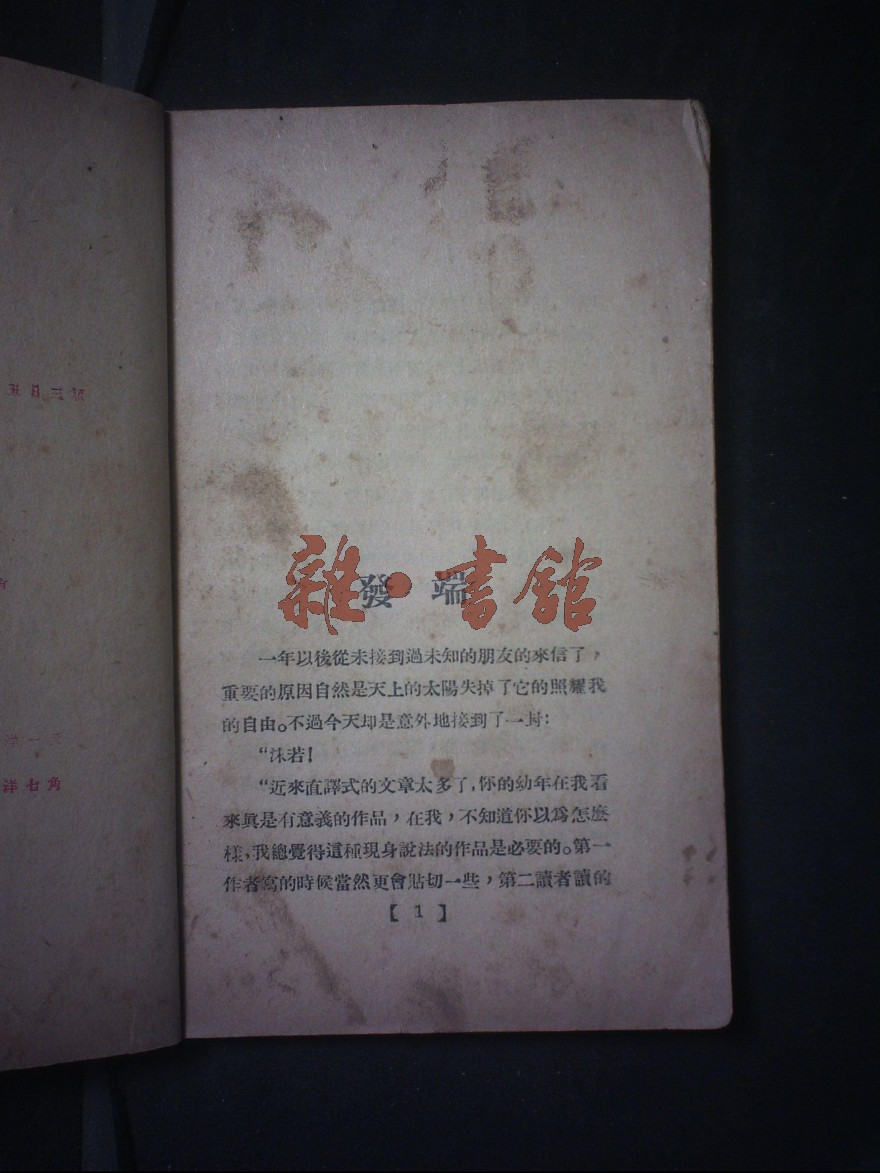 五日三版
洋七角
雜·書館
發端
一年以後從未接到過未知的朋友的來信了，
重要的原因自然是天上的太陽失掉了它的照耀我
的自由。不過今天却是意外地接到了一封：
“沫若！
“近來直譯式的文章太多了，你的幼年在我看
來眞是有意義的作品，在我，不知道你以爲怎麼
樣，我總覺得這種現身說法的作品是必要的。第一
作者寫的時候當然更會貼切一些，第二讀者讀的
【1】